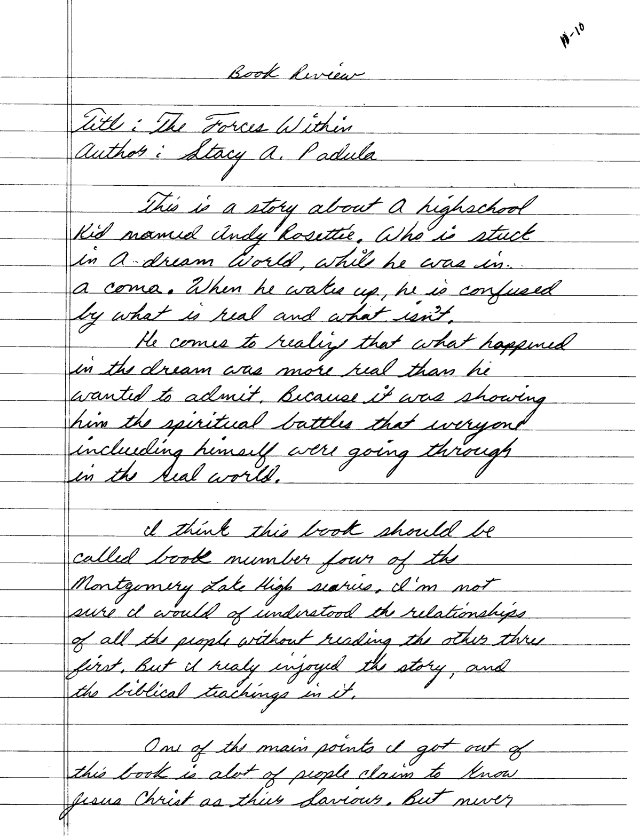 N-10
Book Review
Title : The Forces Within
Author : Stacy A. Padula
This is a story about A highschool
Kid named Andy Rosettie. Who is stuck
in A dream World, while he was in
a coma. When he wakes up, he is confused
by what is real and what isn't.
He comes to realize that what happened
in the dream was more real than he
wanted to admit. Because it was showing
him the spiritual battles that everyone
inclueding himself were going through
in the real world.
I think this book should be
called book number four of the
Montgomery Lake High searies. I'm not
sure I would of understood the relationships
of all the people without reading the other three
first. But I realy injoyed the story, and
the biblical teachings in it.
One of the main points I got out of
this book is alot of people claim to Know
Jesus Christ as thier Saviour. But never